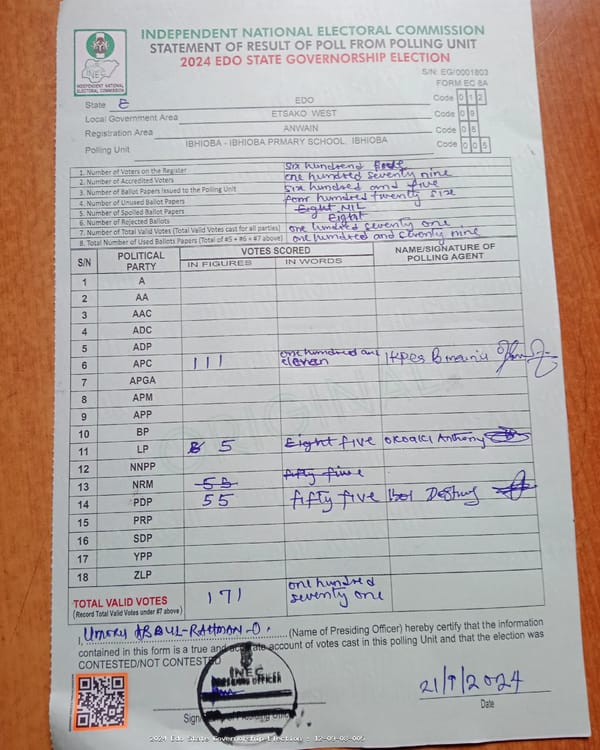 INDEPENDENT NATIONAL ELECTORAL COMMISSION
STATEMENT OF RESULT OF POLL FROM POLLING UNIT
2024 EDO STATE GOVERNORSHIP ELECTION
INEC
INDEPENDENT NATIONAL ELECTORAL COMMISSION
S/N: EG/0001803
FORM EC 8A
State E EDO Code 012
Local Government Area ETSAKO WEST Code 09
Registration Area ANWAIN Code 08
Polling Unit IBHIOBA - IBHIOBA PRMARY SCHOOL, IBHIOBA Code 005
1. Number of Voters on the Register Six hundrend
2. Number of Accredited Voters one hundred seventy nine
3. Number of Ballot Papers Issued to the Polling Unit Six hundred and five
4. Number of Unused Ballot Papers four hundred twenty six
5. Number of Spoiled Ballot Papers Eight NIL
6. Number of Rejected Ballots Eight
7. Number of Total Valid Votes (Total Valid Votes cast for all parties) one hundred seventy one
8. Total Number of Used Ballots Papers (Total of #5 + #6 + #7 above) one hundred and seventy nine
S/N POLITICAL PARTY VOTES SCORED NAME/SIGNATURE OF POLLING AGENT
IN FIGURES IN WORDS
1 A
2 AA
3 AAC
4 ADC
5 ADP
6 APC 111 one hundred and eleven
7 APGA
8 APM
9 APP
10 BP
11 LP 5 Eight five Anthony
12 NNPP
13 NRM 55 fifty five
14 PDP 55 fifty five Destiny
15 PRP
16 SDP
17 YPP
18 ZLP
ORIGINAL
TOTAL VALID VOTES 171 one hundred seventy one
(Record Total Valid Votes under #7 above)
I, Umoru ABDUL-RAHMAN-O. (Name of Presiding Officer) hereby certify that the information
contained in this form is a true and accurate account of votes cast in this polling Unit and that the election was
CONTESTED/NOT CONTESTED
INEC
PRESIDING OFFICER
Signature of Presiding Officer
21/9/2024
Date
2024 Edo State Governorship Election - 12-09-08-005